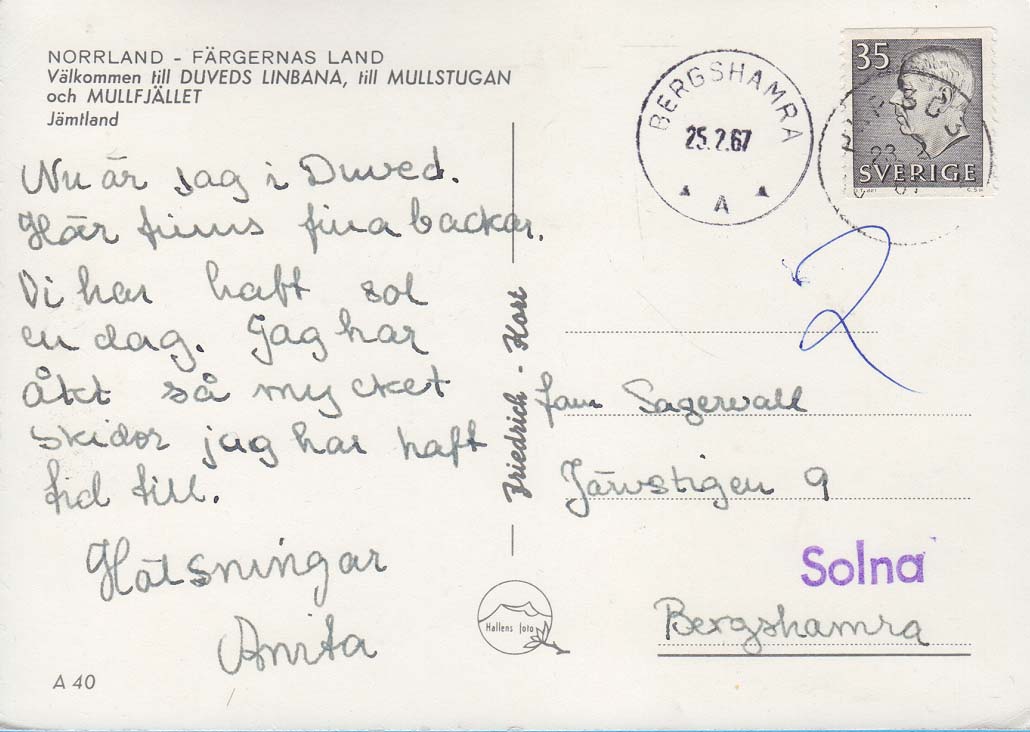 NORRLAND - FÄRGERNAS LAND
Välkommen till DUVEDS LINBANA, till MULLSTUGAN
och MULLFJÄLLET
Jämtland
Nu är jag i Duved.
Här finns fina backar.
Vi har haft sol
en dag. Jag har
åkt så mycket
skidor jag har haft
tid till.
Hälsningar
Anita
A 40
Friedrich - Kort
Hallens foto
BERGSHAMRA
25.2.67
A
35
SVERIGE
2
fam Sagerwall
Järvstigen 9
Solna
Bergshamra